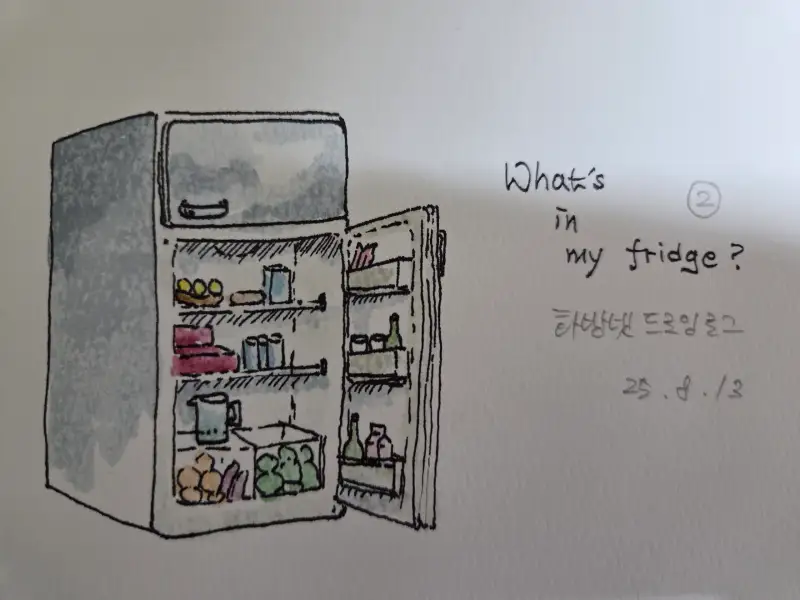 What's
②
in
my fridge?
드로잉로그
25.8.13